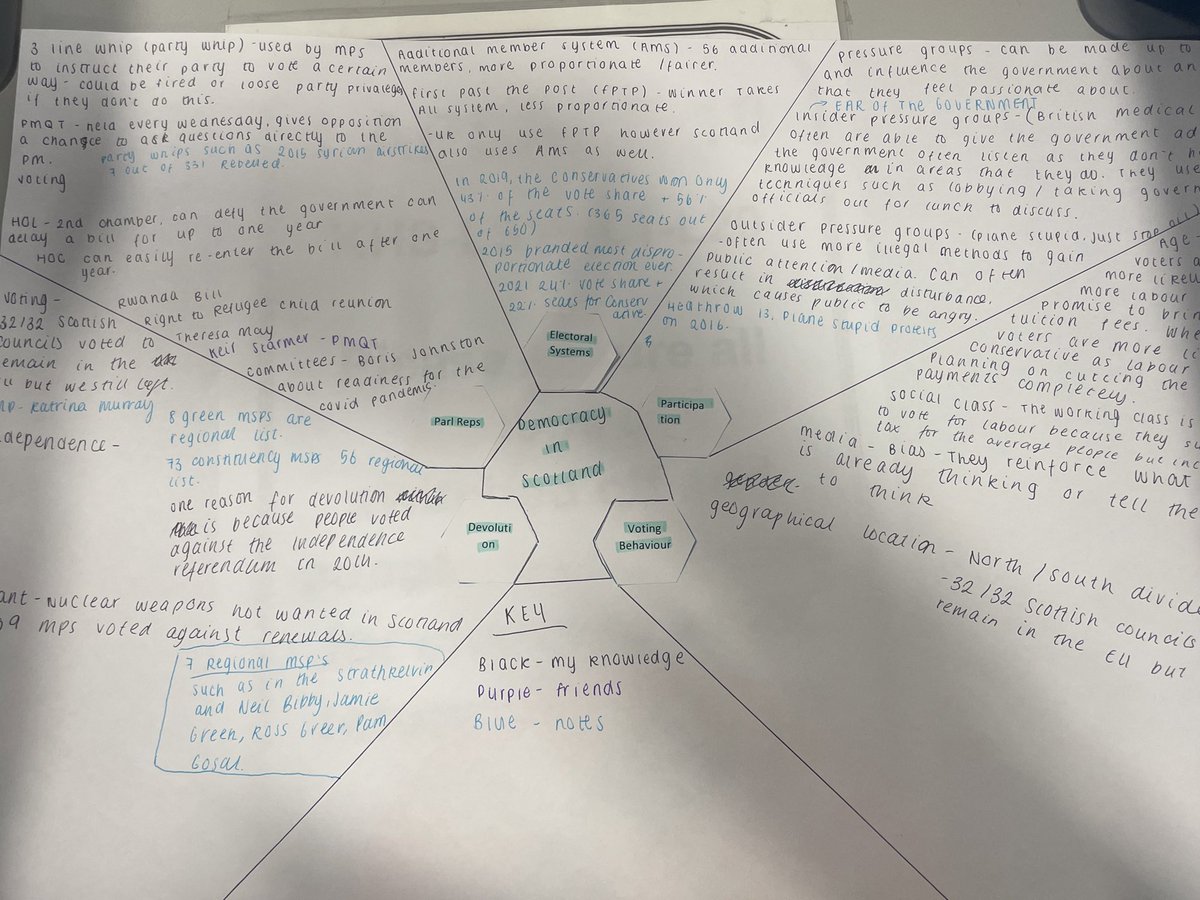 3 line whip (party whip) - used by mps
to instruct their party to vote a certain
way - could be fired or loose party privaleges
if they don't do this.
PMQT - held every wednesday, gives opposition
a change to ask questions directly to the
pm.
party whips such as 2015 syrian airstrikes
7 out of 331 rebelled.
voting
HOL - 2nd chamber, can defy the government can
delay a bill for up to one year
HOC can easily re-enter the bill after one
year.
Rwanda Bill
Right to Refugee child reunion
Theresa May
Keir Starmer - PMQT
committees - Boris Johnston
about readiness for the
covid pandemic.
Parl Reps
Additional member system (AMS) - 56 additional
members, more proportionate / fairer.
first past the post (FPTP) - winner takes
All system, less proportionate.
- UK only use FPTP however scotland
also uses AMS as well.
in 2019, the conservatives won only
43% of the vote share + 56%
of the seats. (365 seats out
of 650)
2015 branded most dispro-
portionate election ever.
2021 24% vote share +
22% seats for conserv
ative.
Electoral
Systems
pressure groups - can be made up to
and influence the government about an
that they feel passionate about.
→ EAR OF THE GOVERNMENT
insider pressure groups - (British medical
often are able to give the government ad
the government often listen as they don't h
knowledge in areas that they do. They use
techniques such as lobbying / taking govern
officials out for lunch to discuss.
outsider pressure groups - (plane stupid, just stop oil)
-often use more illegal methods to gain
public attention/media. Can often
result in disturbance,
which causes public to be angry.
Heathrow 13, plane stupid protests
on 2016.
Participa
tion
Democracy
in
scotland
Age -
voters a
more likeli
more labour
promise to brin
tuition fees. Whe
voters are more li
conservative as labour
planning on cutting the
payments completely.
social class - The working class is
to vote for labour because they su
tax for the average people but inc
media - Bias - They reinforce what
is already thinking or tell the
to think
geographical location - North / south divide
-32/32 scottish councils
remain in the EU but
Voting
Behaviour
voting -
32/32 scottish
councils voted to
remain in the
EU but we still left.
MP - Katrina Murray
dependence -
8 green msps are
regional list.
73 constituency msps 56 regional
list.
one reason for devolution
is because people voted
against the independence
referendum in 2014.
Devoluti
on
ant - nuclear weapons not wanted in scotland
59 mps voted against renewals.
7 Regional msp's
such as in the strathkelvin
and Neil Bibby, Jamie
Green, Ross Greer, Pam
Gosal.
KEY
Black - my knowledge
Purple - friends
Blue - notes